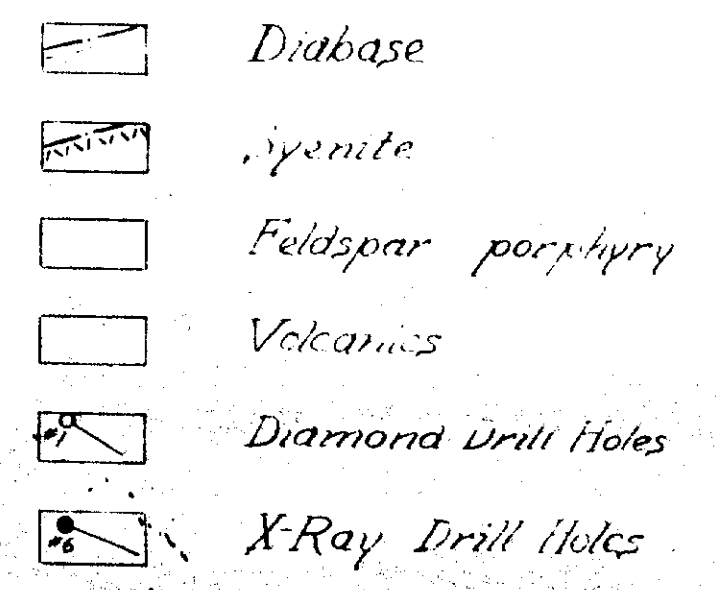 Diabase
Syenite
Feldspar porphyry
Volcanics
#1 Diamond Drill Holes
#6 X-Ray Drill Holes